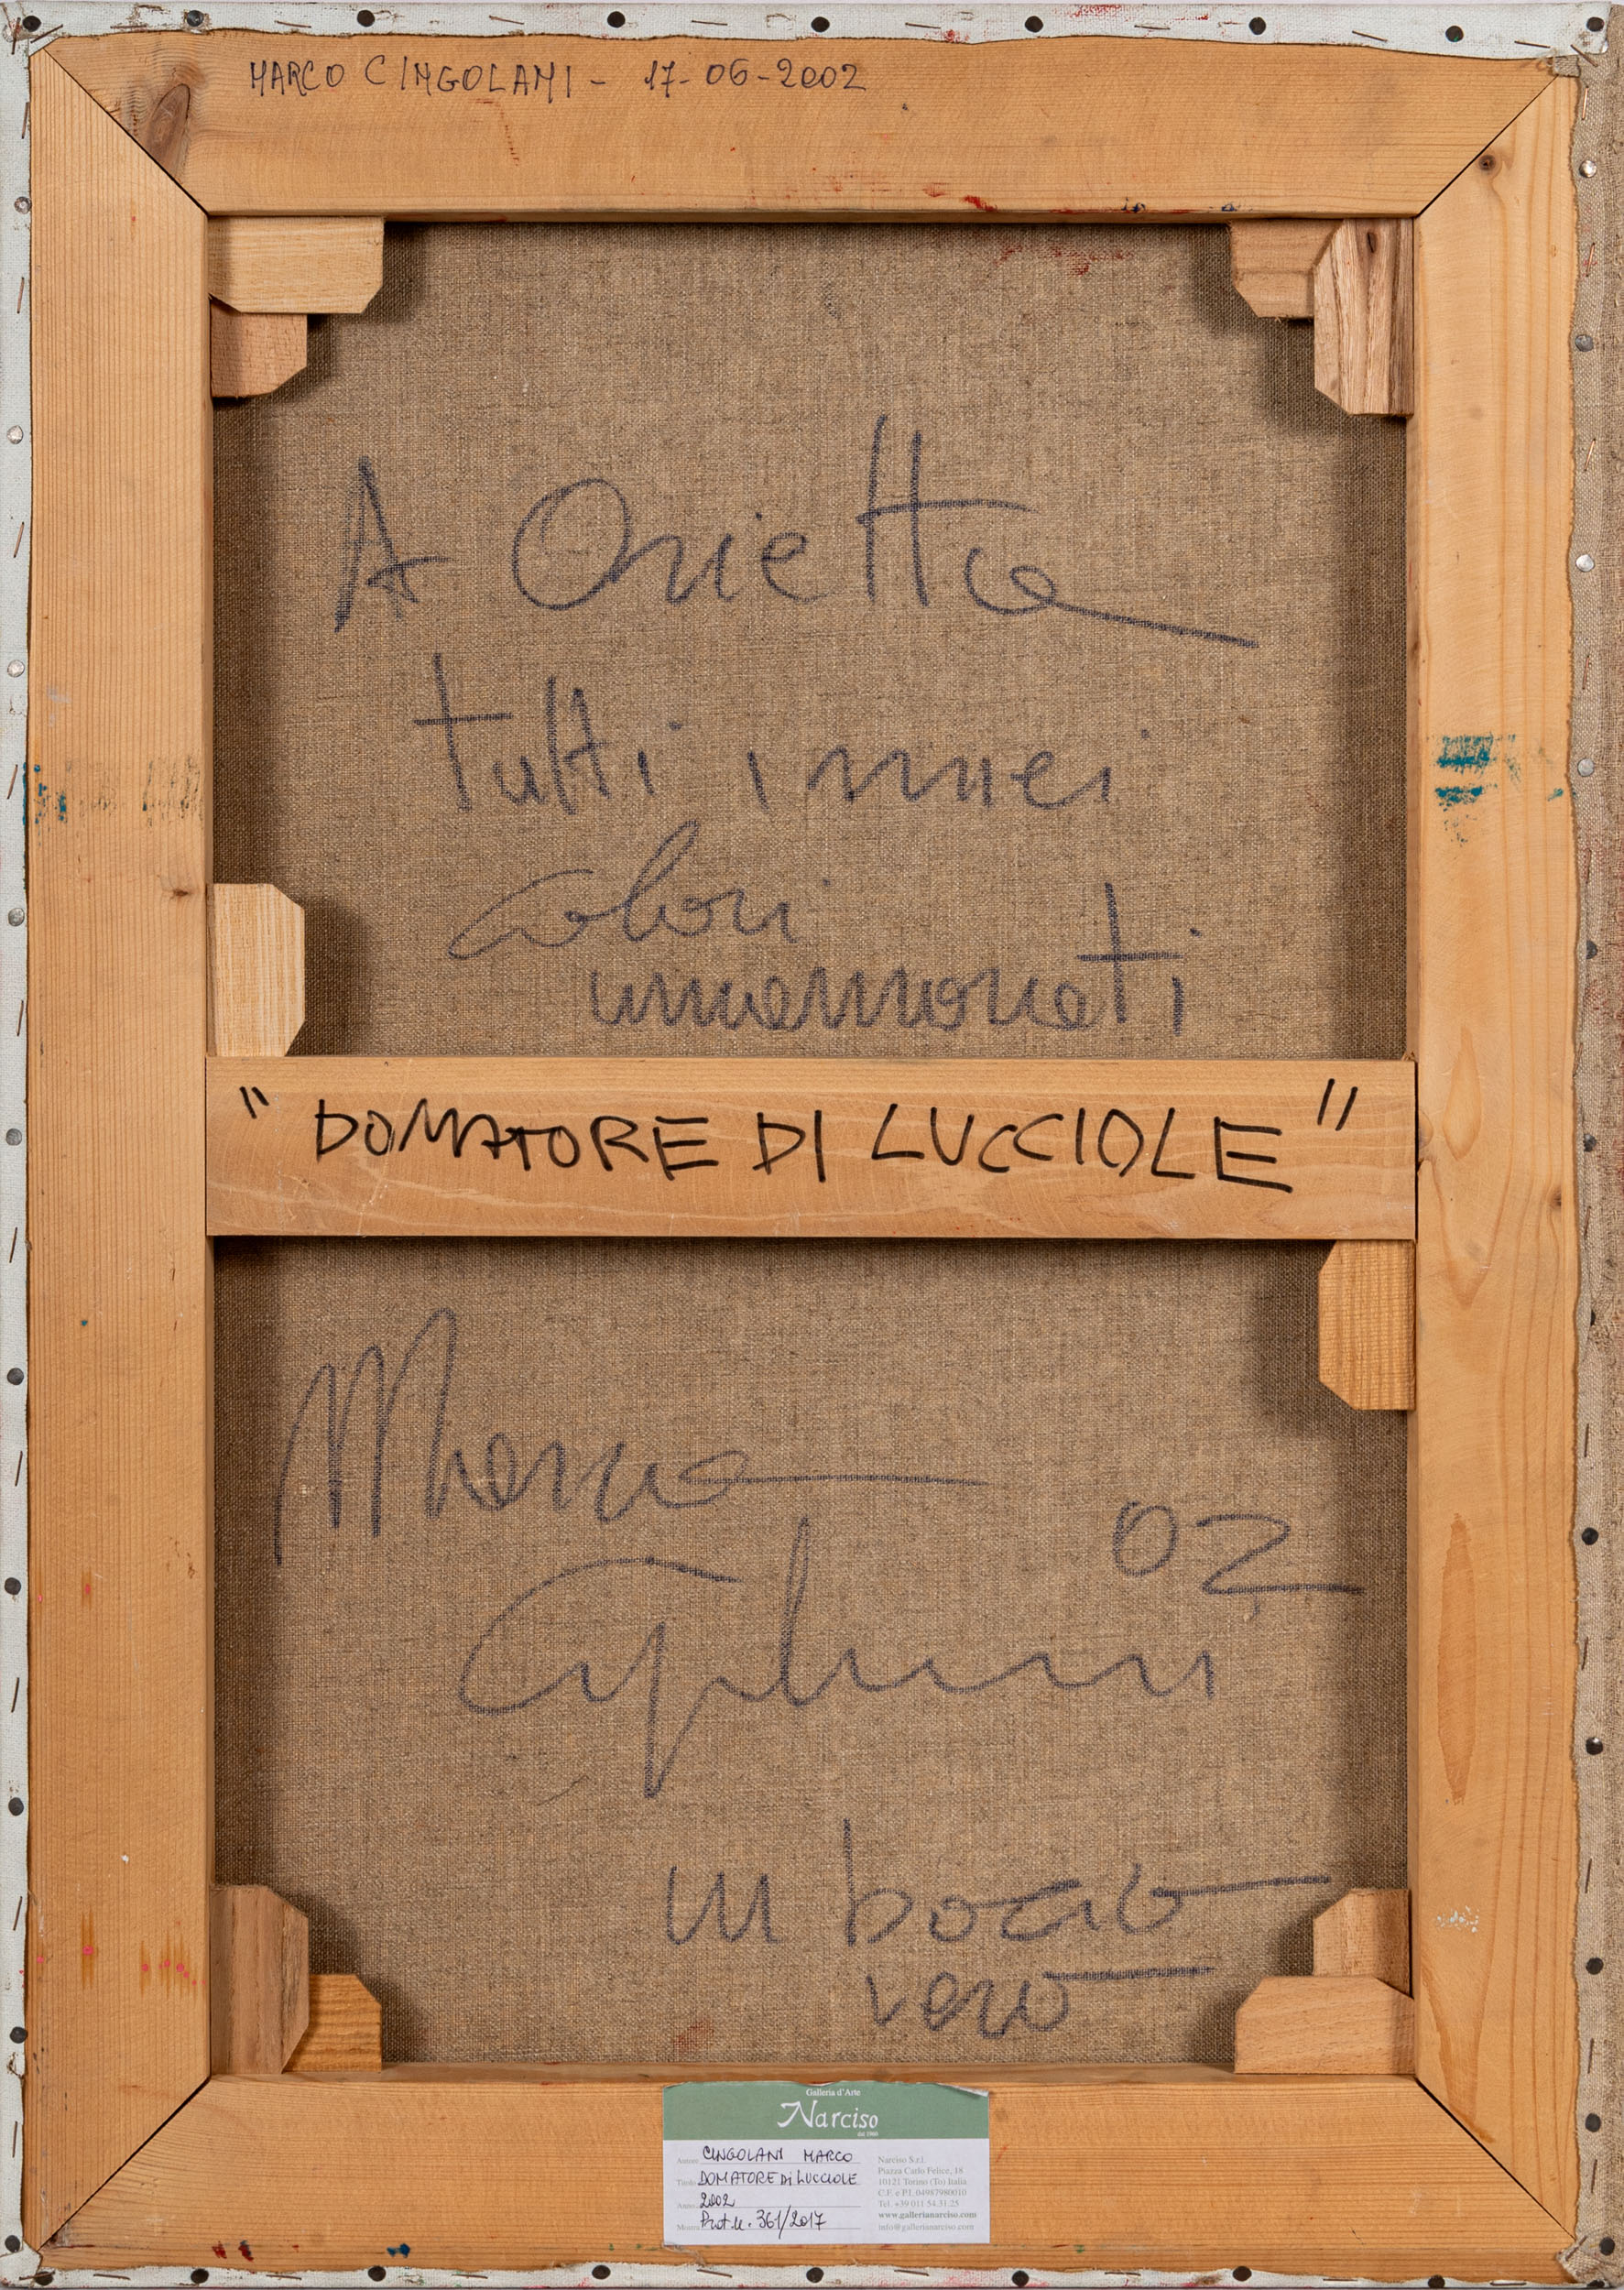 MARCO CINGOLANI - 17-06-2002
A Orietta
tutti i miei
colori
innamorati
" DOMATORE DI LUCCIOLE "
Marco
02
Cingolani
un bacio
vero
Galleria d'Arte
Narciso
dal 1960
Autore CINGOLANI MARCO
Titolo DOMATORE Di LUCCIOLE
Anno 2002
Prot. n. 361/2017
Narciso S.r.l.
Piazza Carlo Felice, 18
10121 Torino (To) Italia
C.F. e P.I. 04987980010
Tel. +39 011 54.31.25
www.gallerianarciso.com
info@gallerianarciso.com